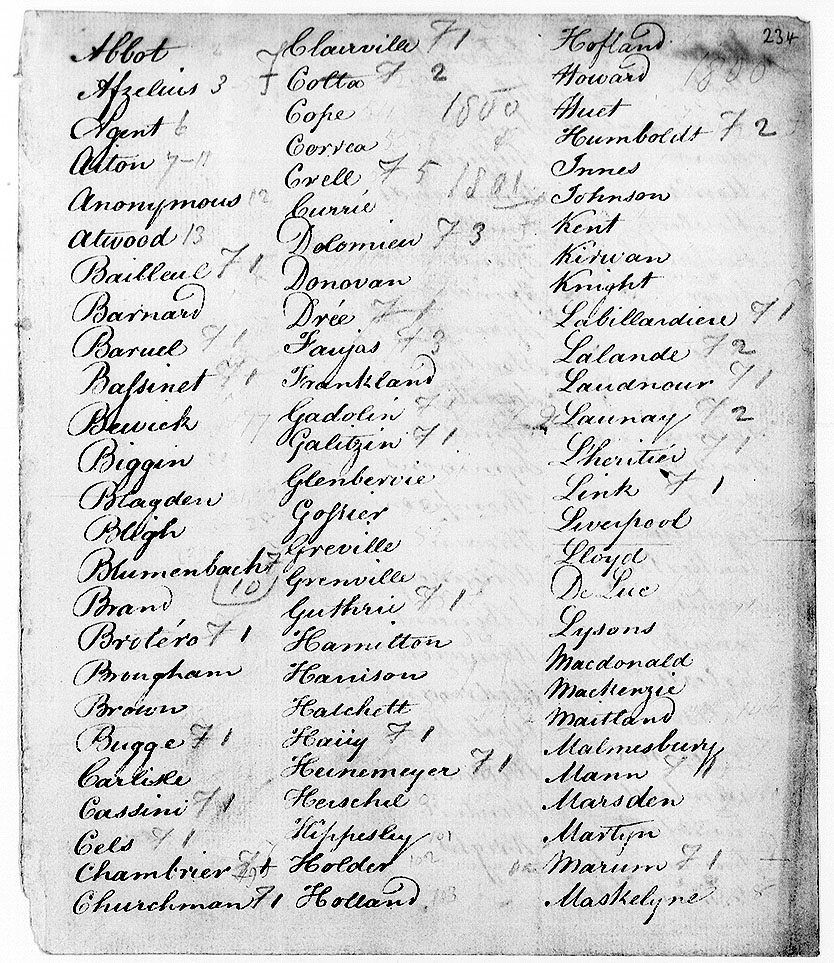 234
Abbot 2
Afzelius 3
Agent 6
Aiton 7-11
Anonymous 12
Atwood 13
Bailleul F 1
Barnard
Baruel F 1
Baſsinet F 1
Bewick
Biggin
Blagden
Bligh
Blumenbach F
10
Brand
Brotéro F 1
Brougham
Brown
Bugge F 1
Carlisle
Cassini F 1
Cels F 1
Chambrier
Churchman F 1
Clairville F 1
Cotta F 2
Cope 1800
Correa
Crell F 5 1801
Currie
Dolomieu F 3
Donovan
Drée F 1
Faujas F 3
Frankland
Gadolin F
Galitzin F 1
Glenbervie
Goſsier
Greville
Grenville
Guthrie F 1
Hamilton
Harrison
Hatchett
Haüy F 1
Heinemeyer F 1
Herschel
Hippesley 101
Holder 102
Holland 103
Hofland
Howard 1800
Huet
Humboldt F 2
Innes
Johnson
Kent
Kirwan
Knight
Labillardiere F 1
Lalande F 2
Laudnour F 1
Launay F 2
L'heritier F 1
Link F 1
Liverpool
Lloyd
De Luc
Lysons
Macdonald
Mackenzie
Maitland
Malmesbury
Mann F 1
Marsden
Martyn
Marum F 1
Maskelyne